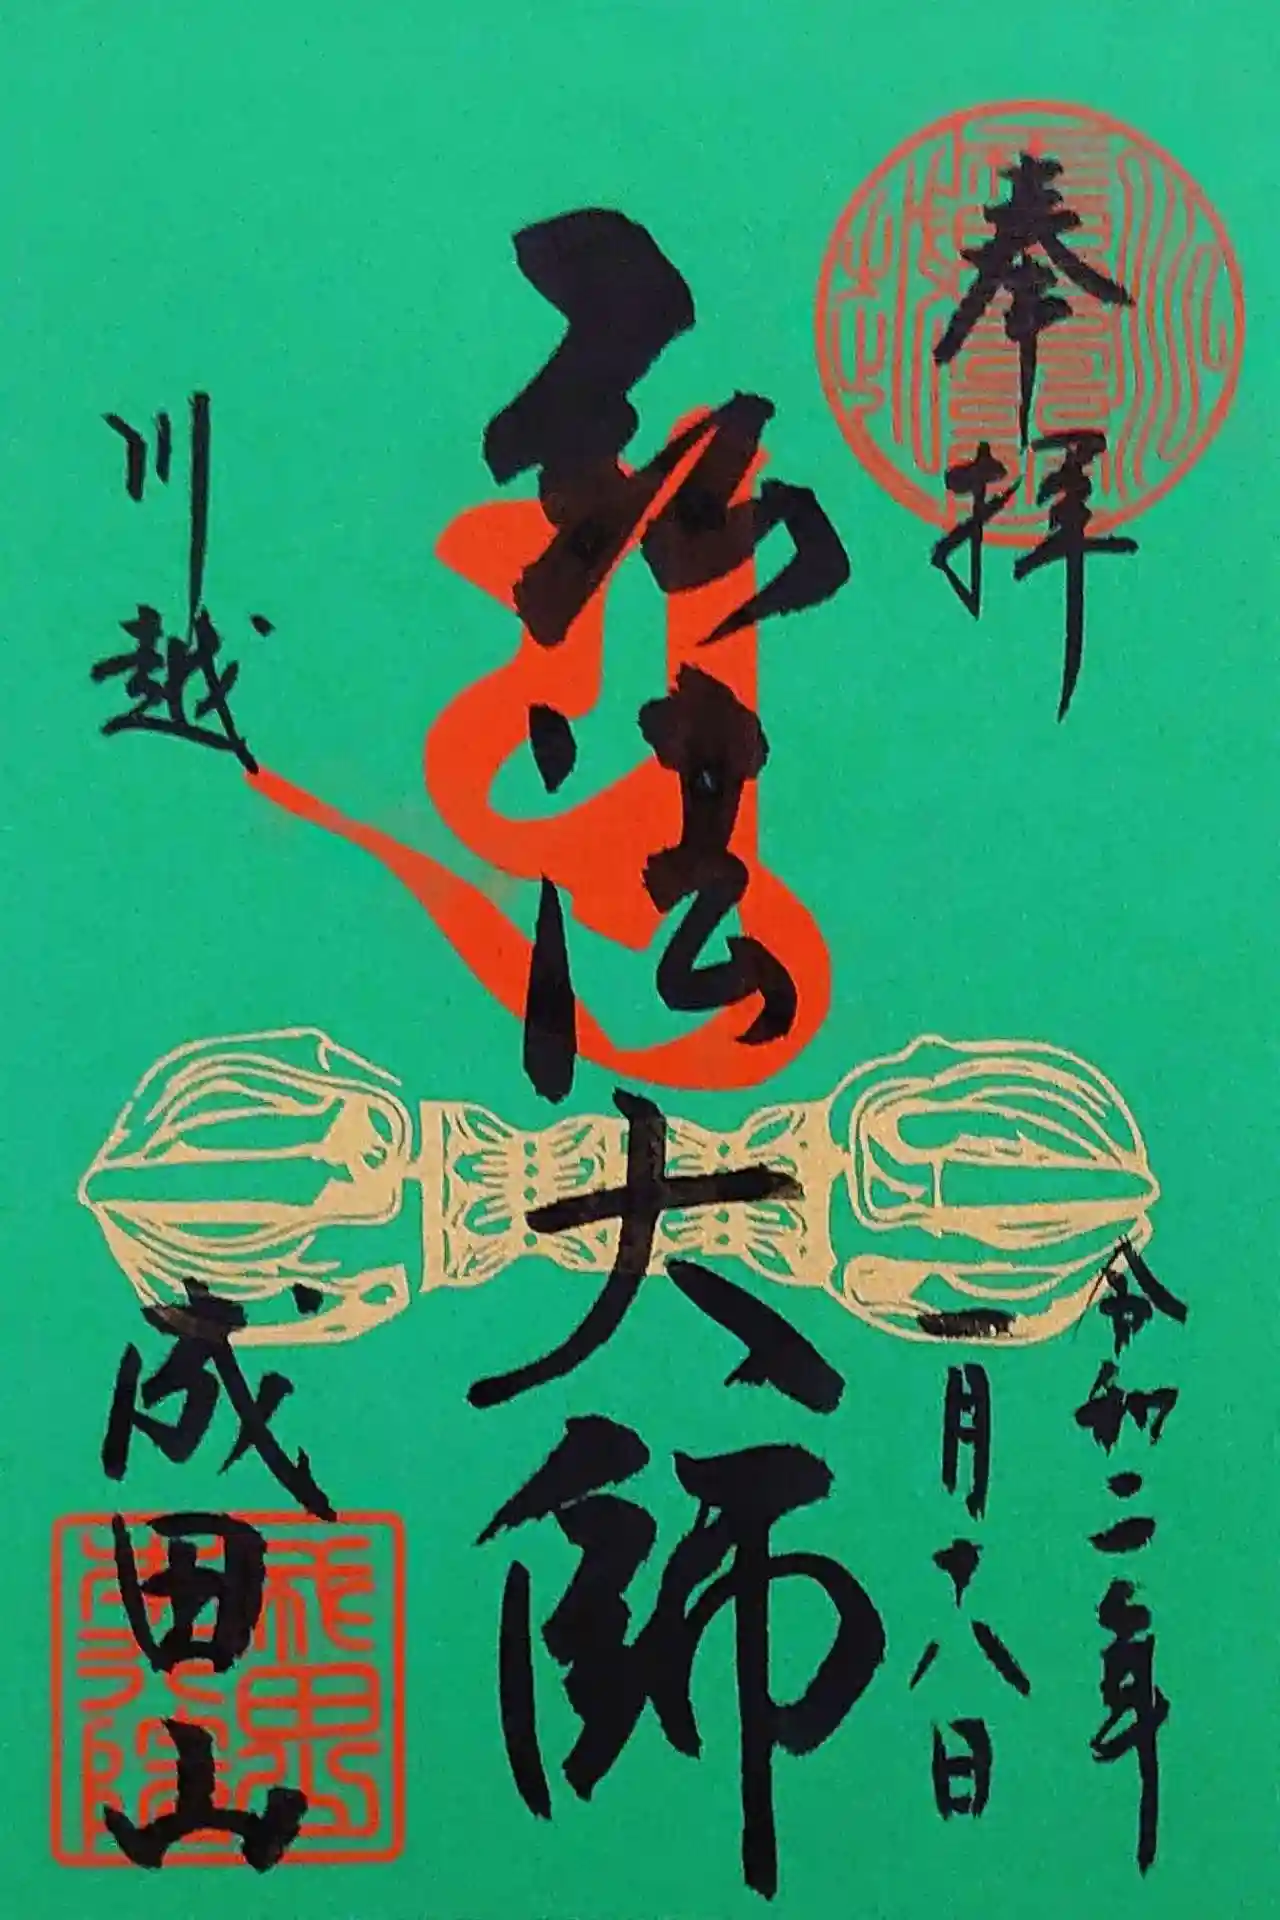 奉拝
令和二年
一月十八日
弘法大師
川越
成田山